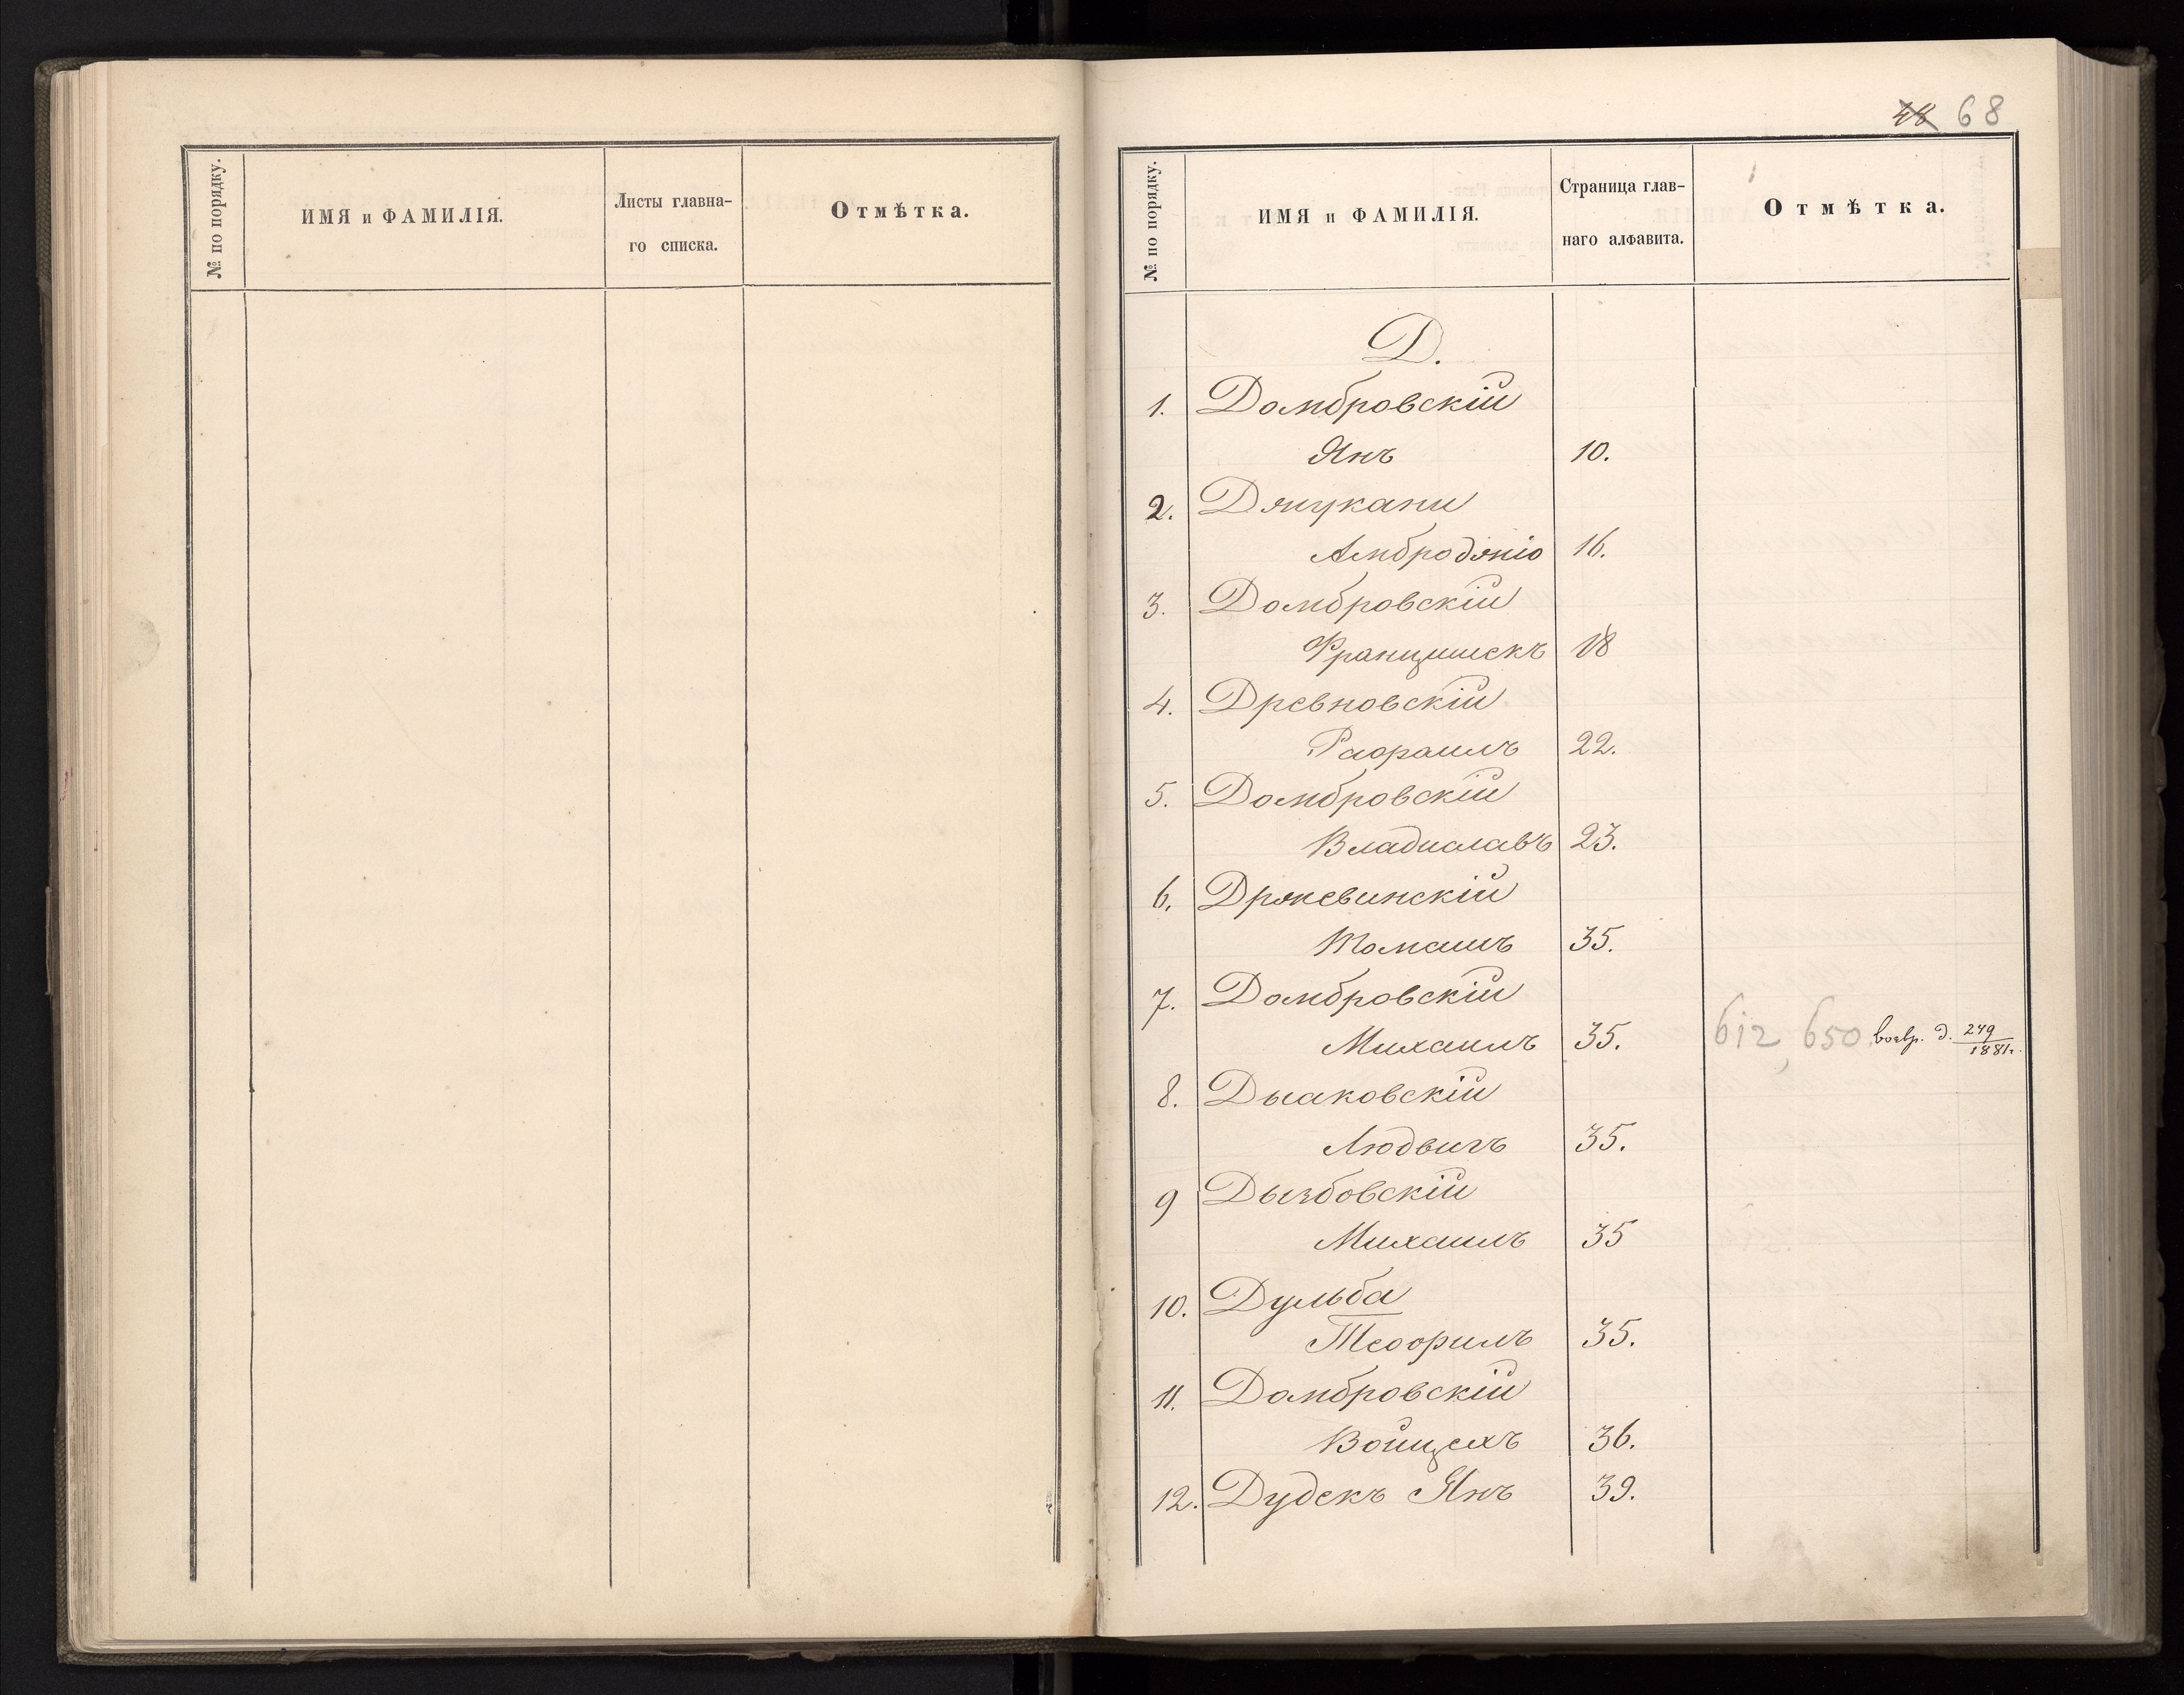 № по порядку.
ИМЯ и ФАМИЛІЯ.
Листы главна-
го списка.
Отмѣтка.
48 68
№ по порядку.
ИМЯ и ФАМИЛІЯ.
Страница глав-
наго алфавита.
Отмѣтка.
Д.
1. Домбровскій
Янъ 10.
2. Джукани
Амброджіо 16.
3. Домбровскій
Францишекъ 18
4. Древновскій
Рафаилъ 22.
5. Домбровскій
Владиславъ 23.
6. Држевинскій
Томашъ 35.
7. Домбровскій
Михаилъ 35. 612, 650 д. 249
1881г.
8. Дысаковскій
Людвигъ 35.
9 Дызбовскій
Михаилъ 35
10. Дульба
Теофилъ 35.
11. Домбровскій
Войцехъ 36.
12. Дудекъ Янъ 39.